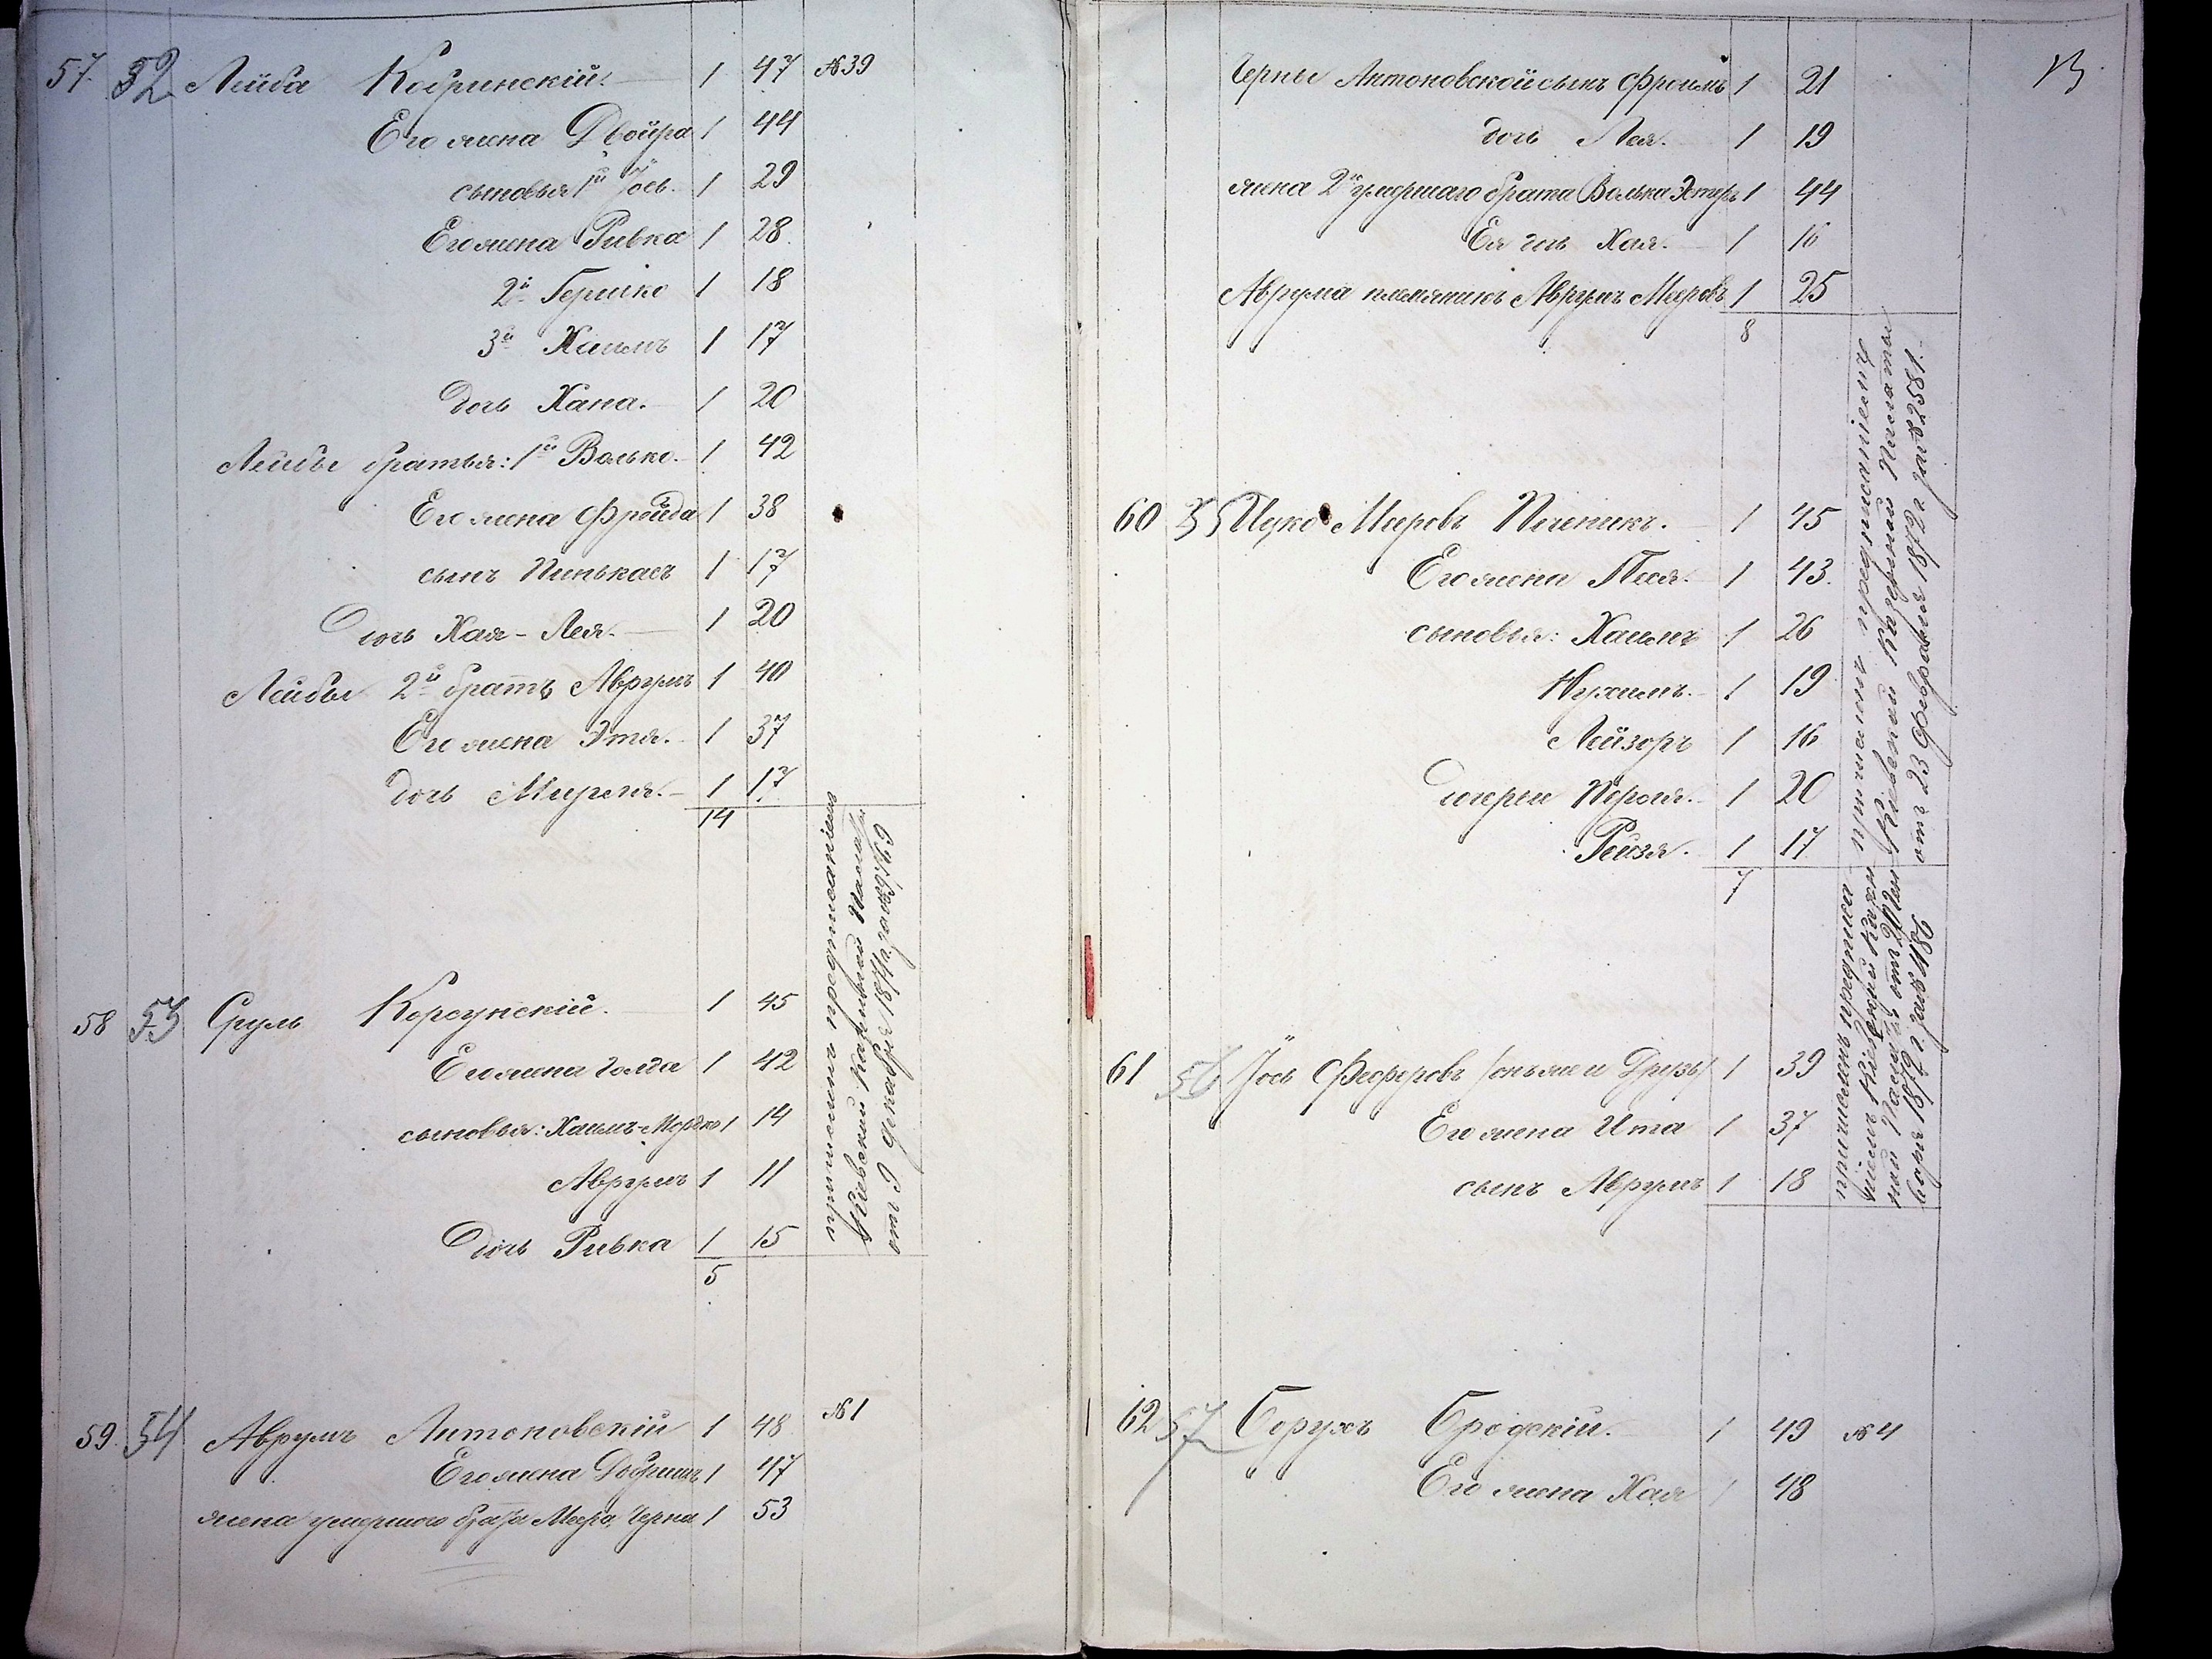 57. 52 Лейба Кобринскій. 1 47 №39
Его жена Двойра 1 44
сыновья 1й Іось. 1 29
Его жена Ривка 1 28.
2й Гершко 1 18
3й Хаимъ 1 17
дочь Хана. 1 20
Лейбы братья: 1й Волько. 1 42
Его жена Фройда 1 38
сынъ Пинькасъ 1 17
Дочь Хая-Лея. 1 20
Лейбы 2й братъ Аврумъ 1 40
Его жена Этя. 1 37
дочь Миреля. 1 17
14
58 53 Сруль Корсунскій. 1 45
Его жена Голда 1 42
сыновья: Хаимъ-Мордко 1 14
Аврумъ 1 11
Дочь Ривка 1 15
5
предписаніемъ
Кіевской Казенной Палаты
отъ 9 декабря 1871 г. за №
59. 54 Аврумъ Антоновскій 1 48 №1
Его жена Добришъ 1 47
жена умершаго брата Меера, Черна 1 53
13
Черны Антоновской сынъ Фроимъ 1 21
дочь Лея. 1 19
жена 2го умершаго брата Волька Эстеръ 1 44
Ея дочь Хая. 1 16
Аврума племяникъ Аврумъ Мееровъ 1 25
8
60 55 Ицко Мееровъ 1 45
Его жена Песя. 1 43.
сыновья: Хаимъ 1 26
Нухимъ. 1 19
Лейзоръ 1 16
Дочери Перля. 1 20
Рейзя. 1 17
7
предписаніемъ
Кіевской Казенной Палаты
отъ 23 Февраля 1872 г. за № 2581.
61 56 Іось Феферовъ /онъ же и Друзь/ 1 39
Его жена Ита 1 37
сынъ Аврумъ 1 18
причисленъ предписа
ніемъ Кіевской Казен
ной Палаты отъ 20 Ян
варя 1872 г. за № 486
62 57 Борухъ Бродскій. 1 49 №4
Его жена Хая 1 48